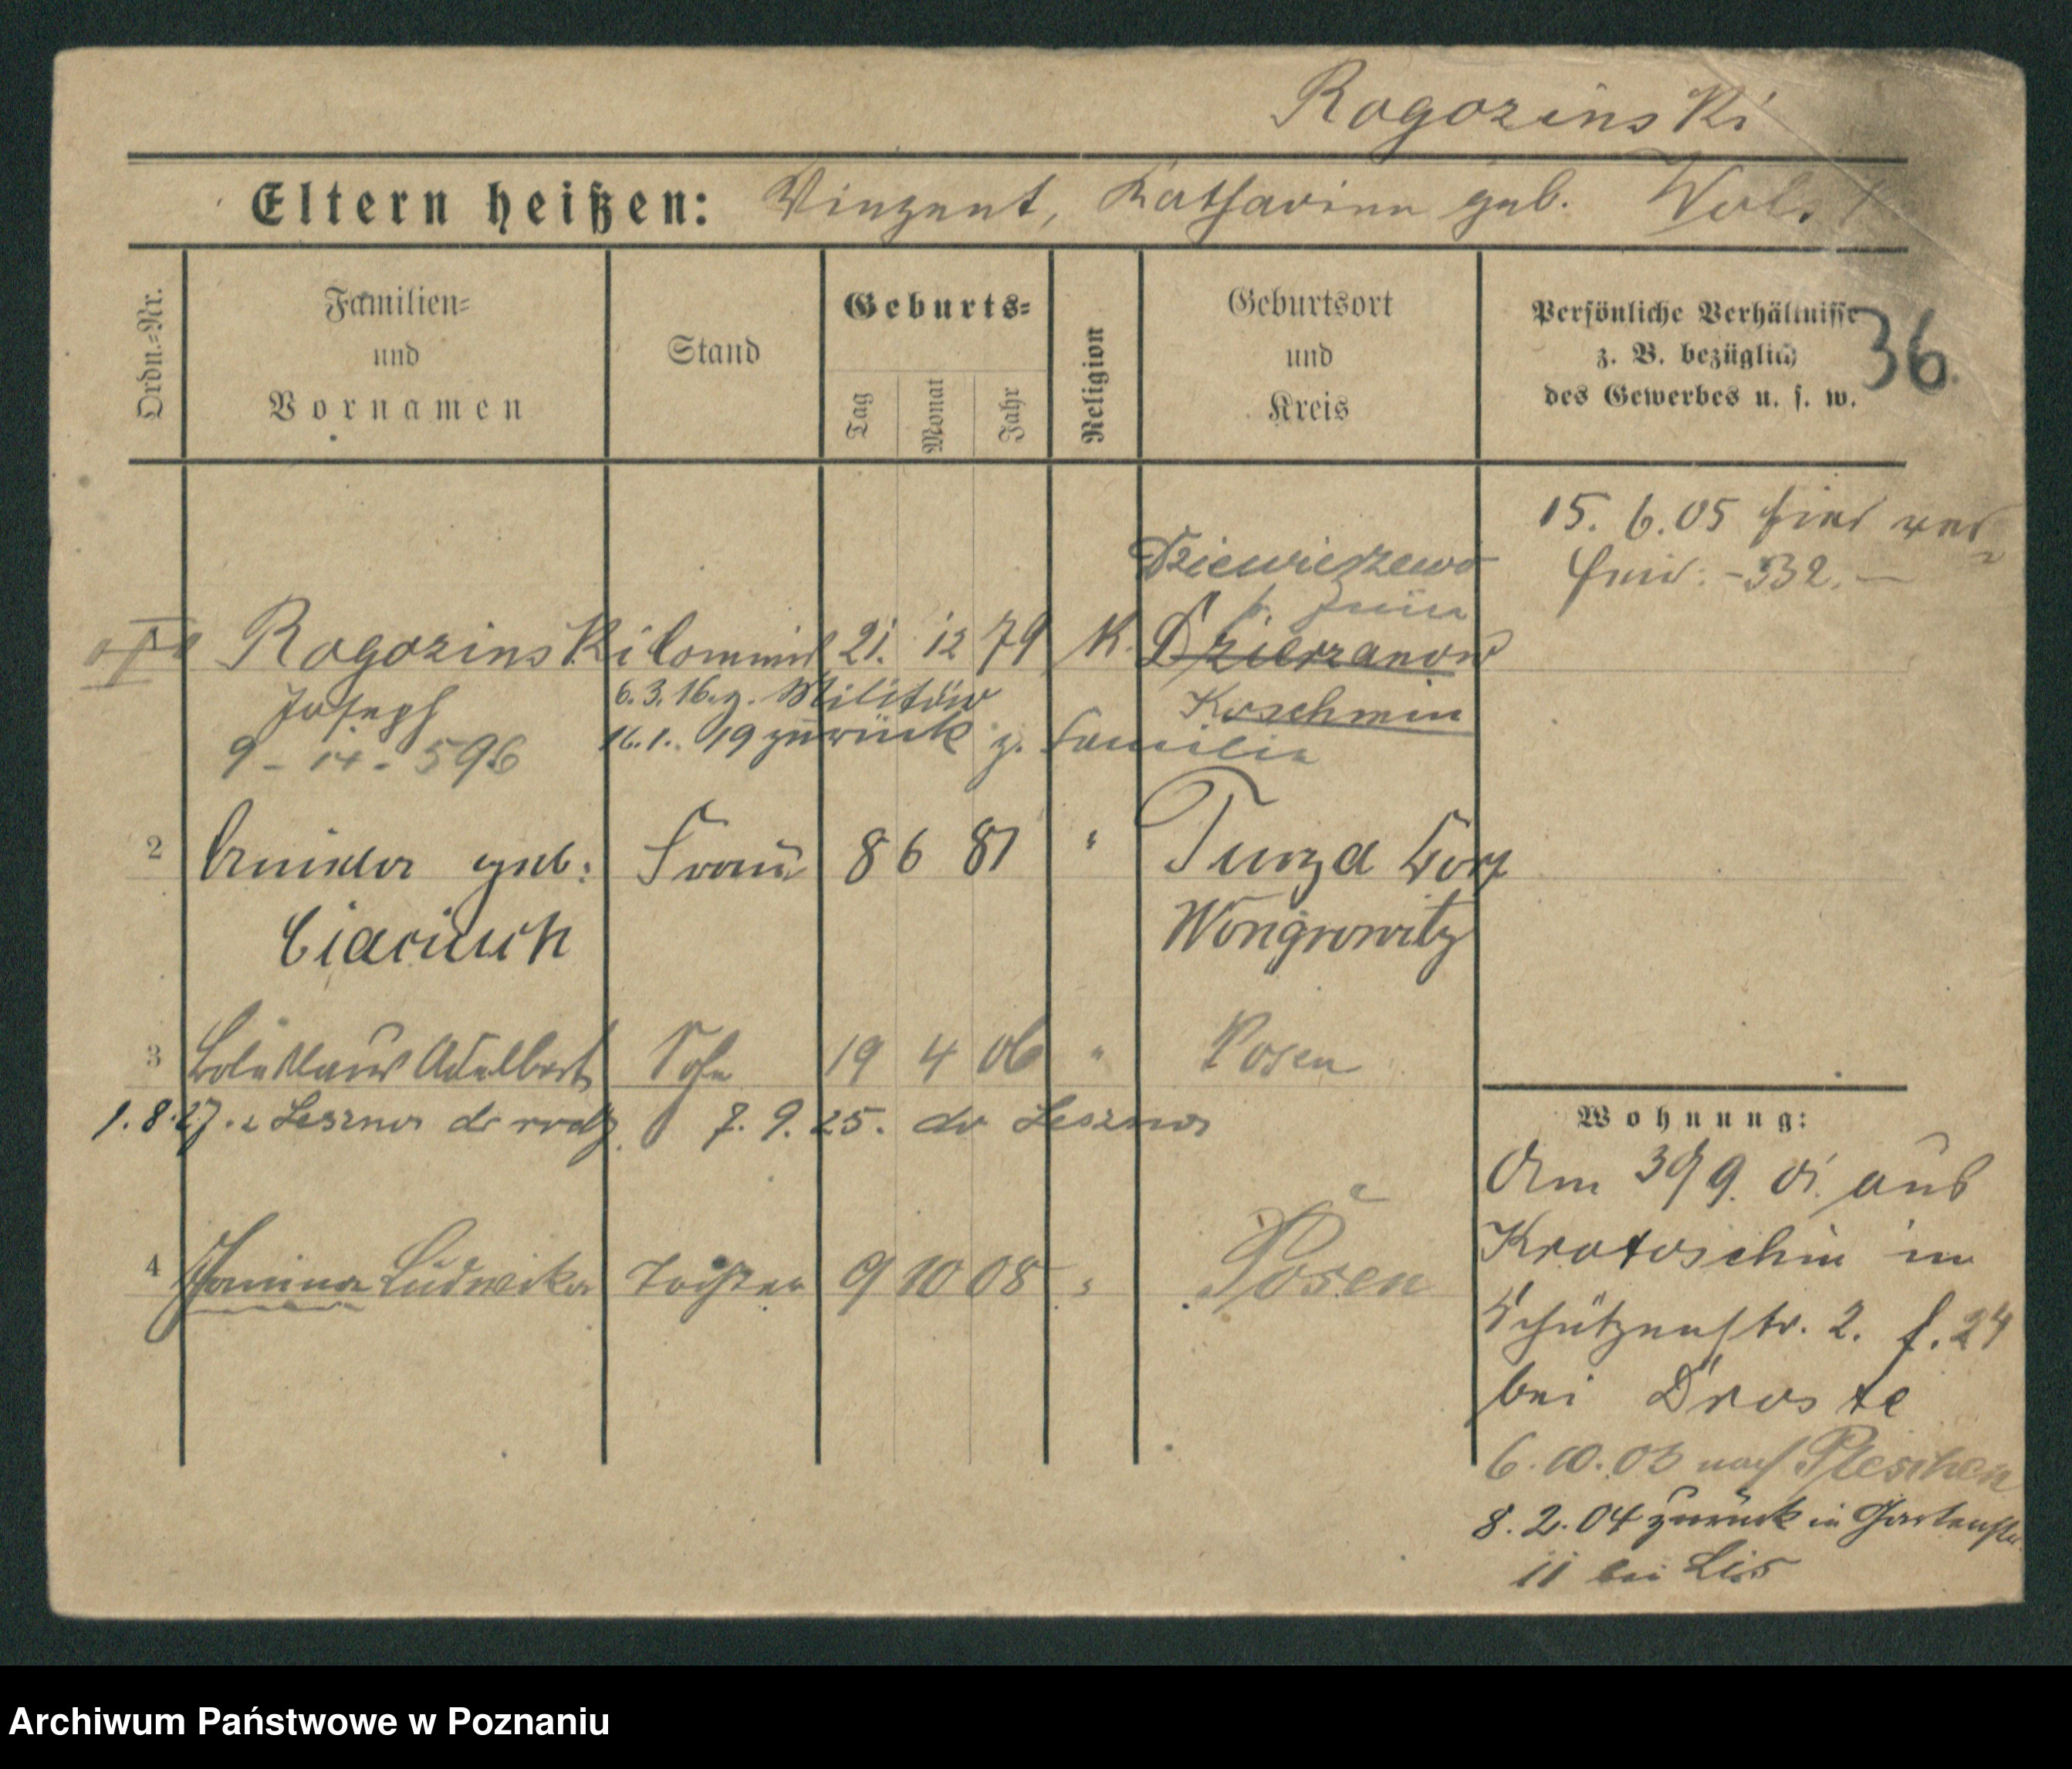 Rogozinski
Eltern heißen: Vinzent, Katharina geb.
Ordn.-Nr.
Familien-
und
Vornamen
Stand
Geburts-
Tag
Monat
Jahr
Religion
Geburtsort
und
Kreis
Persönliche Verhältnisse
z. B. bezüglich
des Gewerbes u. s. w.
36
15. 6. 05 hier ver-
heir: - 332. —
Dziewierzewo
Rogozinski Commis 21. 12 79 K. Dzierzanow
Joseph 6.3.16. z. Militär Koschmin
9 - 14 - 596 16.1. 19 zurück z. Familie
2 geb: Frau 8 6 81 " Turza Dorf
Wongrowitz
3 Boleslaus Adalbert Sohn 19 4 06 " Posen
1.8.27. z Leszna do rodz. 7.9.25. do Leszna
4 Janina Ludwika Tochter 9 10 08 " Posen
Wohnung:
Am aus
Krotoschin in
Schützenstr. 2. f. 24
bei Droste
6.10.03 nach Pleschen
8.2.04 zurück in Gartenstr.
11 bei Lis
Archiwum Państwowe w Poznaniu